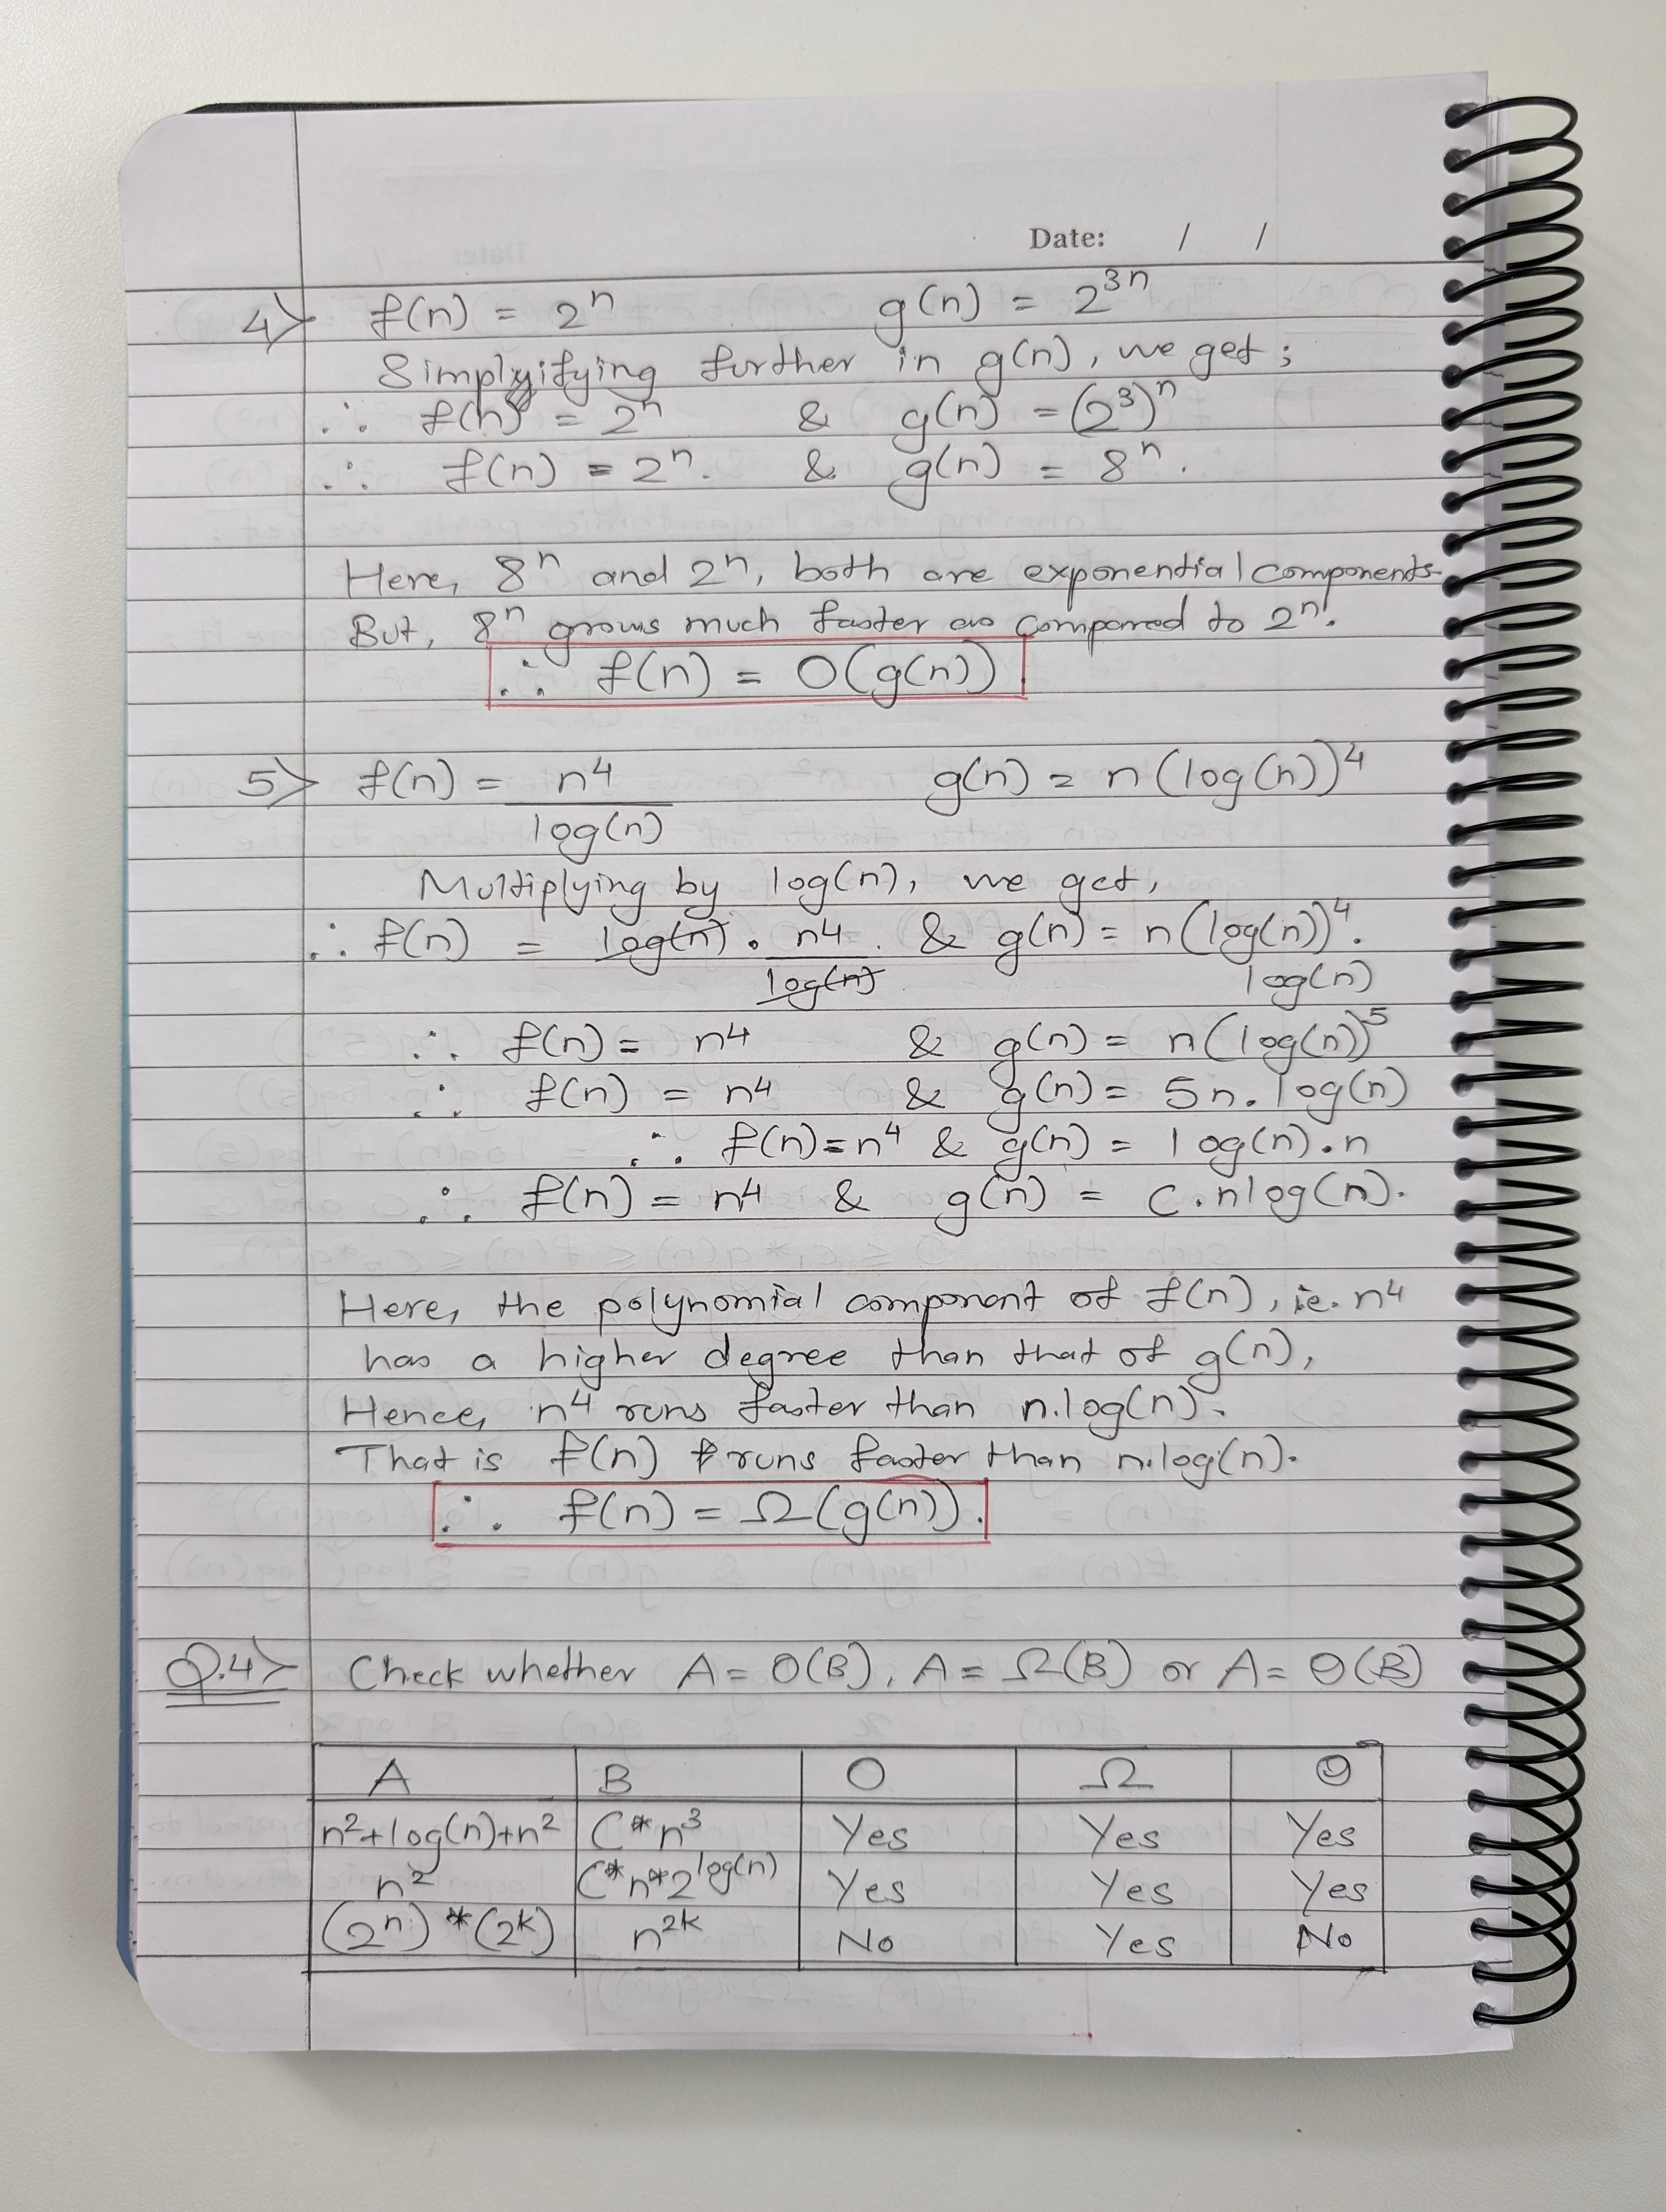 Date: / /
4> f(n) = 2^n g(n) = 2^3n
Simplyifying further in g(n), we get;
∴ f(n) = 2^n & g(n) = (2^3)^n
∴ f(n) = 2^n. & g(n) = 8^n.
Here, 8^n and 2^n, both are exponential components.
But, 8^n grows much faster as compared to 2^n.
∴ f(n) = O(g(n)).
5> f(n) = n^4 / log(n) g(n) = n(log(n))^4
Multiplying by log(n), we get,
∴ f(n) = log(n) . n^4 / log(n) . & g(n) = n(log(n))^4.
log(n)
∴ f(n) = n^4 & g(n) = n(log(n))^5
∴ f(n) = n^4 & g(n) = 5n.log(n)
∴ f(n) = n^4 & g(n) = log(n).n
∴ f(n) = n^4 & g(n) = C.nlog(n).
Here, the polynomial component of f(n), ie. n^4
has a higher degree than that of g(n),
Hence, n^4 runs faster than n.log(n).
That is f(n) runs faster than n.log(n).
∴ f(n) = Ω(g(n)).
Q.4> Check whether A = O(B), A = Ω(B) or A = Θ(B)
A B O Ω Θ
n^2+log(n)+n^2 C*n^3 Yes Yes Yes
n^2 C*n*2^log(n) Yes Yes Yes
(2^n)*(2^k) n^2k No Yes No